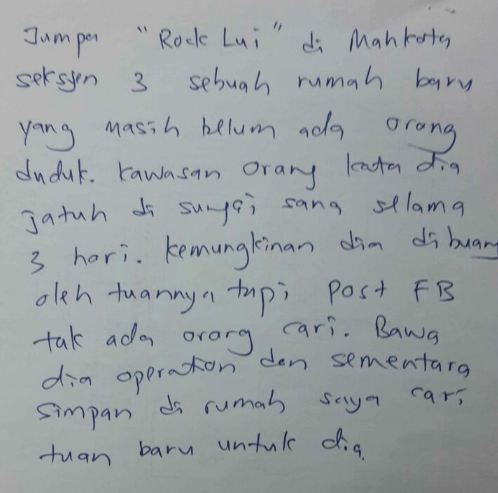 Jumpa "Rock Lui" di Mahkota
seksyen 3 sebuah rumah baru
yang masih belum ada orang
duduk. Kawasan orang kata dia
jatuh di sungai sana selama
3 hari. Kemungkinan dia dibuang
oleh tuannya tapi Post FB
tak ada orang cari. Bawa
dia operation dan sementara
simpan di rumah saya cari
tuan baru untuk dia.